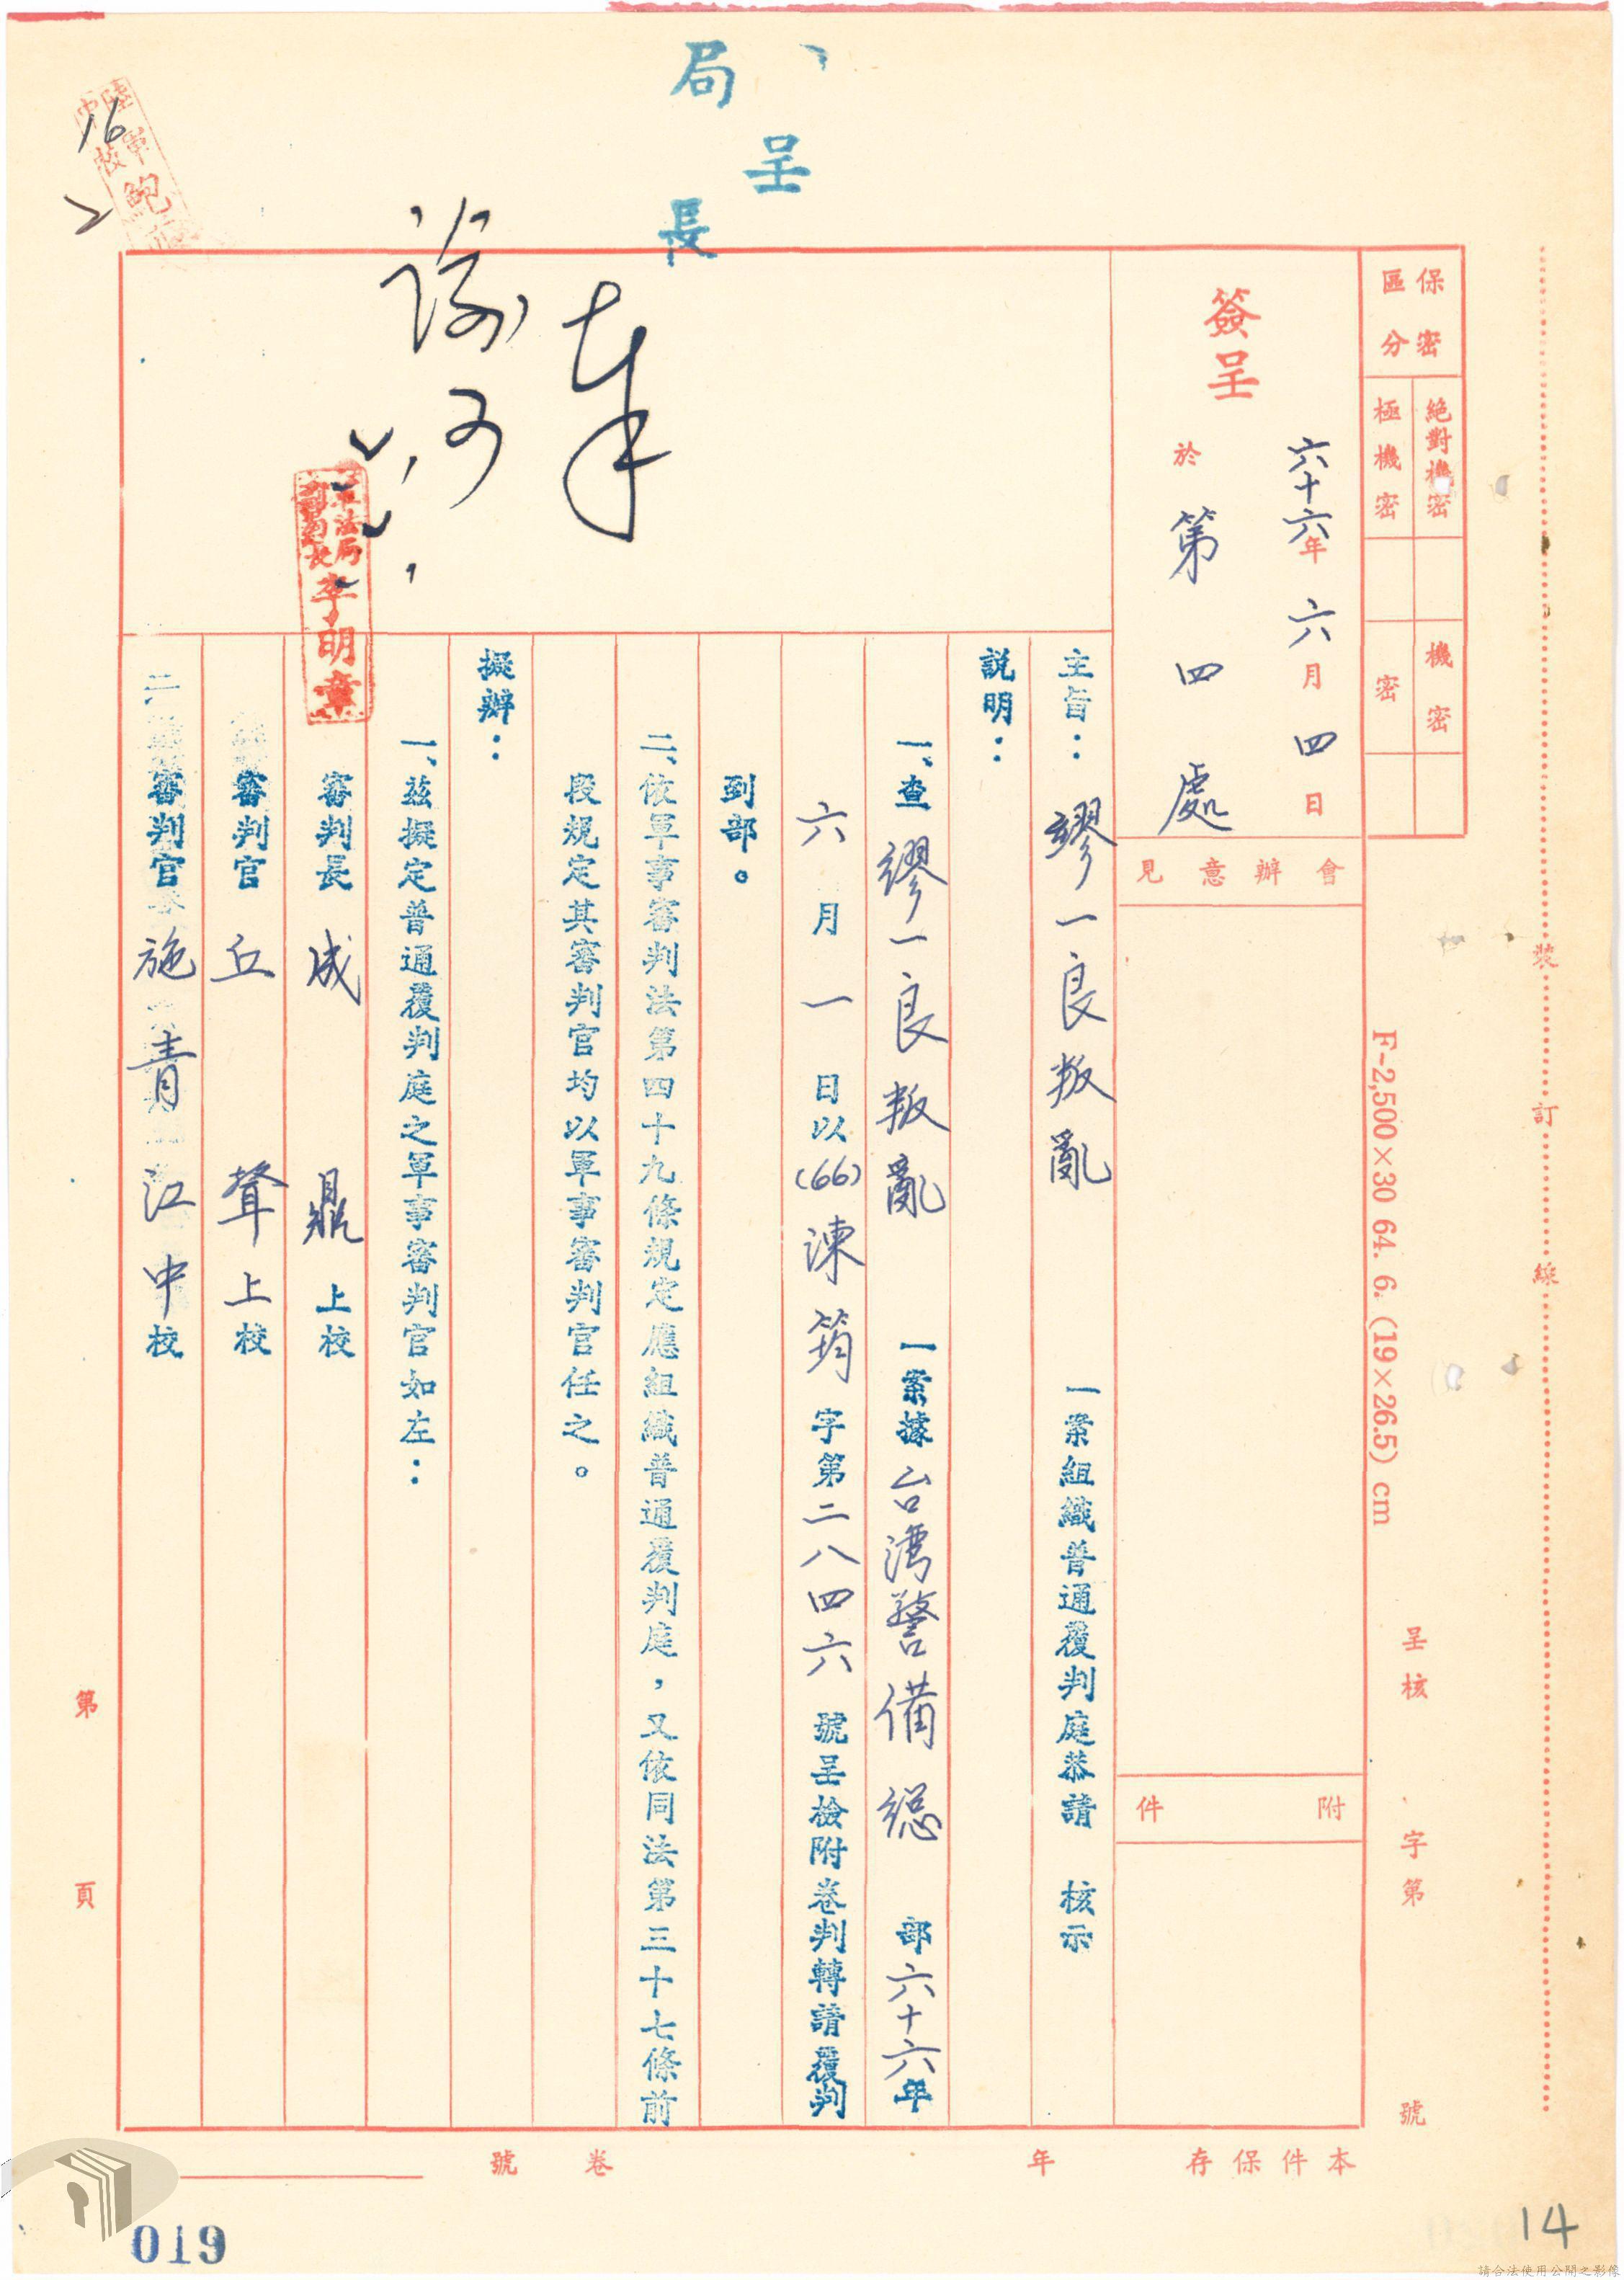 呈
局長
16
陸軍
中校
鮑
保密
區分
絕對機密
極機密
機密
密
簽呈
六十六年六月四日
於第四處
會辦意見
附件
奉
可
軍法局
副局長
李明章
主旨：繆一良叛亂一案組織普通覆判庭恭請 核示
說明：
一、查繆一良叛亂一案據台灣警備總部六十六年
六月一日以(66)諫筠字第二八四六號呈檢附卷判轉請覆判
到部。
二、依軍事審判法第四十九條規定應組織普通覆判庭，又依同法第三十七條前
段規定其審判官均以軍事審判官任之。
擬辦：
一、茲擬定普通覆判庭之軍事審判官如左：
審判長 成鼎上校
審判官 丘聳上校
二、審判官 施青江中校
裝
訂
線
F-2,500×30 64. 6. (19×26.5) cm
呈核 字第 號
第 頁
本件保存 年
卷號
019
14
請合法使用公開之影像